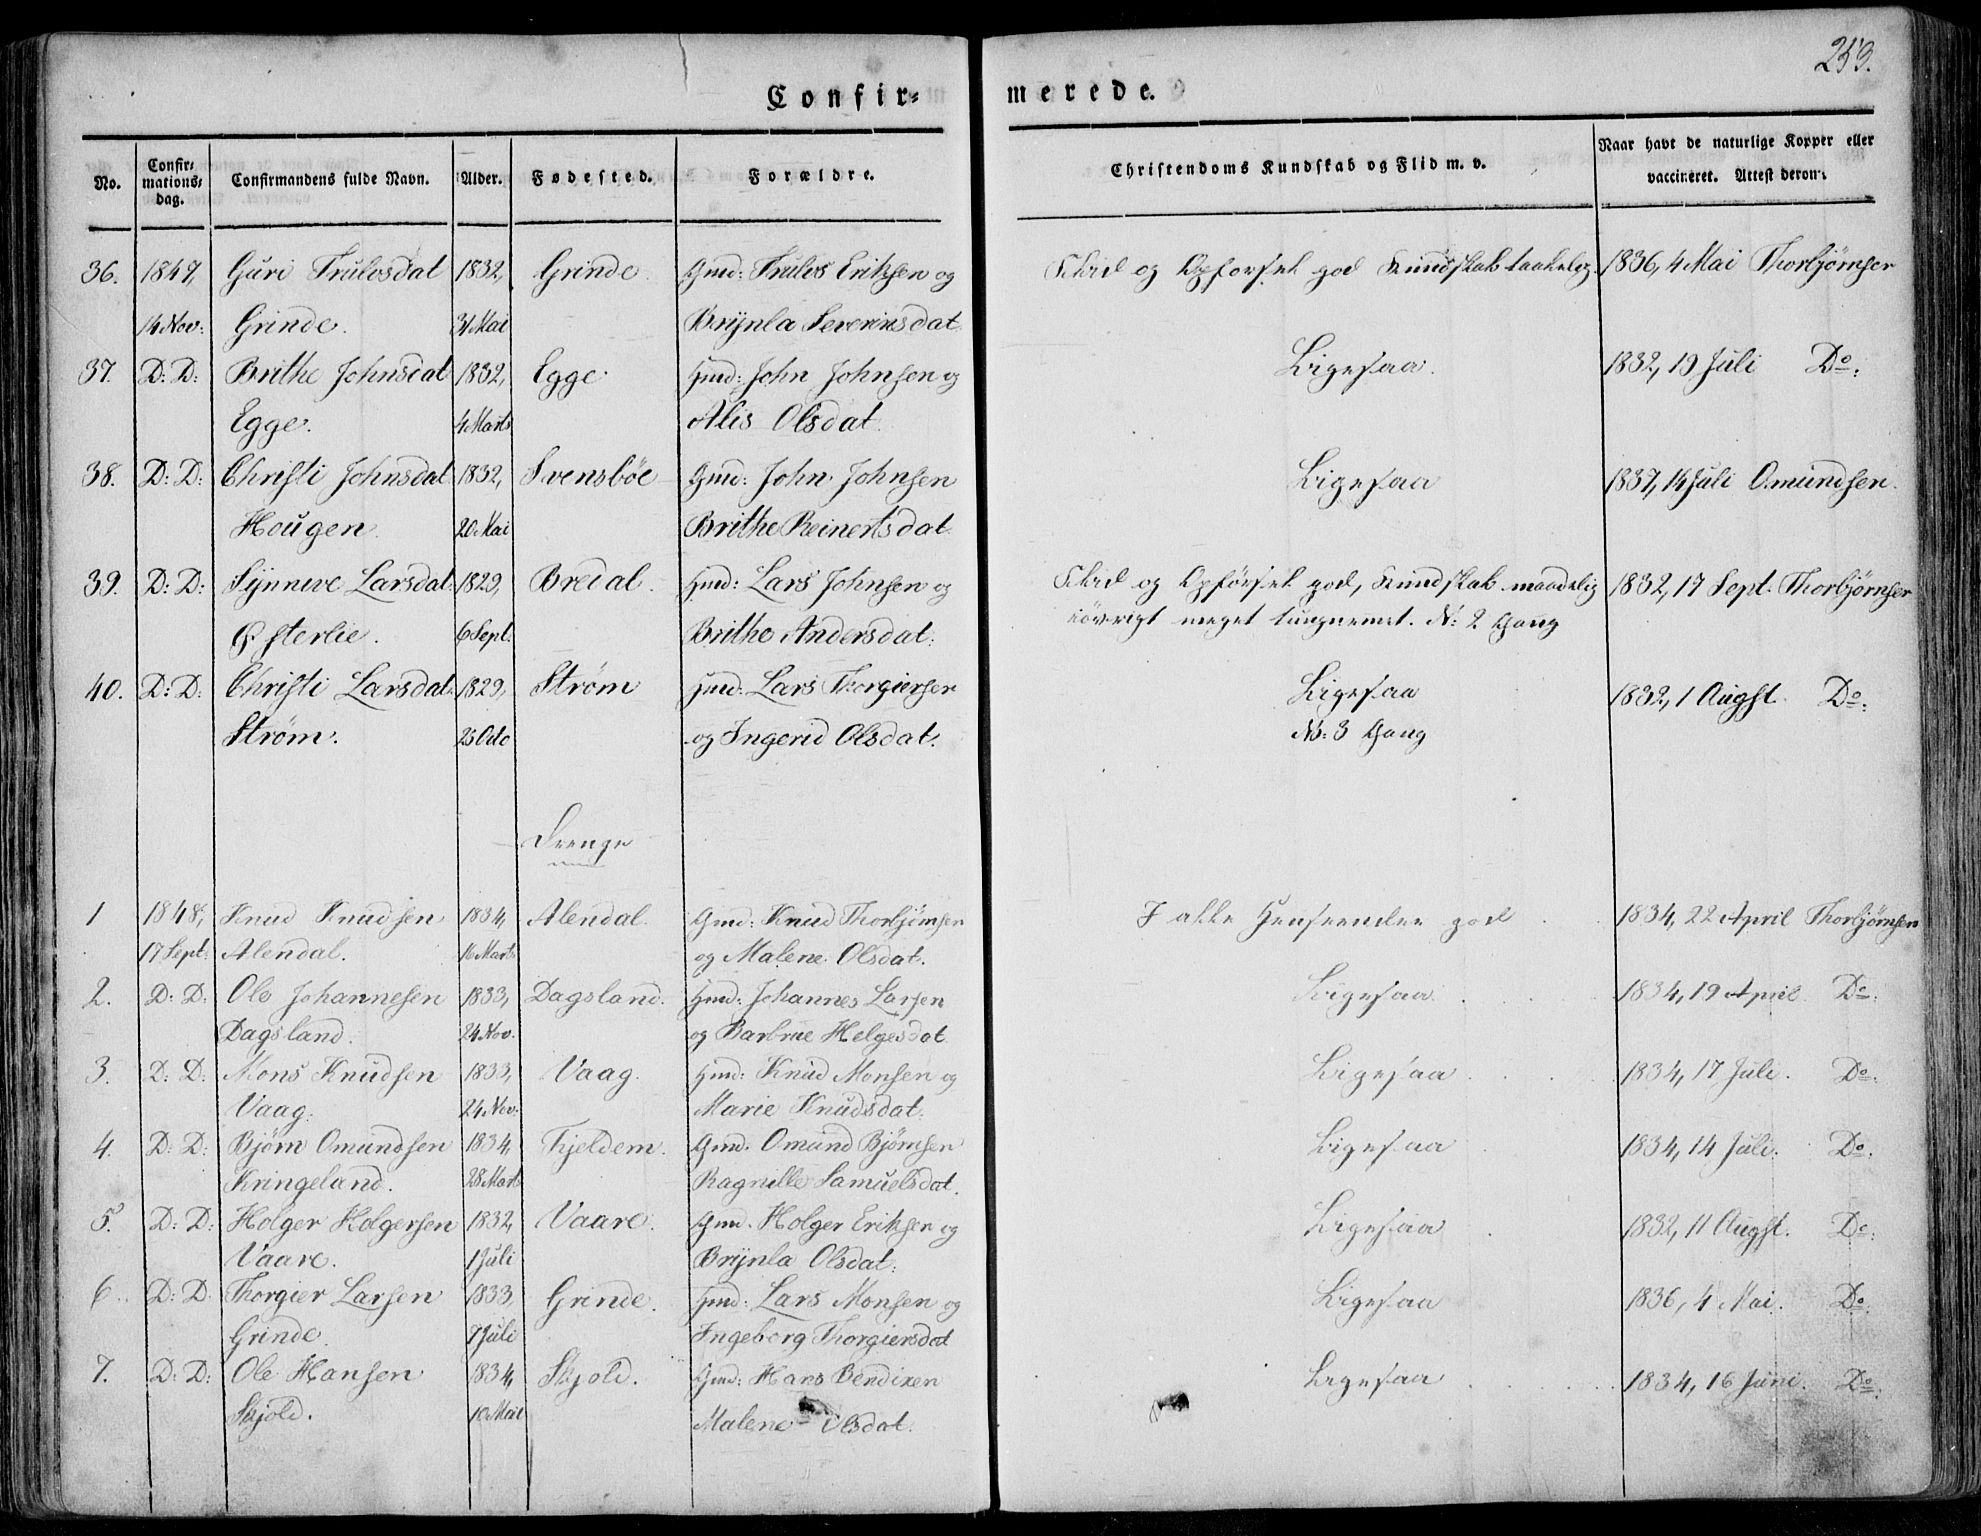 253.
Confir= merede.
No. Confir= mations= dag. Confirmandens fulde Navn. Alder. Fødested. Forældre. Christendoms Kundskab og Flid m. v. Naar havt de naturlige Kopper eller vaccineret. Attest derom.
36. 1847, Guri Trulosdat 1832, Grinde. Gmd: Trulos Eriksen og Flid og Opførsel god Kundskab taalelig 1836, 4 Mai Thorbjørnsen
14 Nov: Grinde. 31 Mai Brÿnla Severinsdat.
37. D: D: Brithe Johnsdat 1832, Egge. Hmd: John Johnsen og Ligesaa. 1832, 19 Juli Do:
Egge. 4 Marts Alis Olsdat.
38. D: D: Christi Johnsdat 1832, Svensböe Gmd: John Johnsen Ligesaa 1837, 14 Juli Omundsen.
Hougen. 20 Mai Brithe Reinertsdat.
39. D: D: Sÿnneve Larsdat: 1829, Bredal. Hmd: Lars Johnsen og Flid og Opførsel god, Kundskab maadelig 1832, 17 Sept. Thorbjørnsen
Østerlie. 6 Sept. Brithe Andersdat: iøvrigt meget tungnemet. N: 2 Gang
40. D: D: Christi Larsdat. 1829, Strøm Hmd: Lars Thorgiersen Ligesaa 1832, 1 Augst. Do:
Strøm. 23 Octo og Ingerid Olsdat. N: 3 Gang
Drenge
1 1848, Knud Knudsen 1834, Alendal. Gmd: Knud Thorbjørnsen I alle Henseender god 1834, 22 April Thorbjørnsen
17 Sept: Alendal. 16 Marts og Malene Olsdat.
2. D: D: Ole Johannesen 1833, Dagsland. Hmd: Johannes Larsen Ligesaa. 1834, 19 April. Do:
Dagsland. 24 Nov. og Barbrue Helgesdat.
3. D: D: Mons Knudsen 1833, Vaag. Hmd: Knud Monsen og Ligesaa 1834, 17 Juli. Do:
Vaag. 24 Nov: Marie Knudsdat.
4. D: D: Bjørn Omundsen 1834, Fjeldem. Gmd. Omund Bjørnsen Ligesaa 1834, 14 Juli. Do:
Kringeland. 28 Marts Ragnille Samuelsdat.
5. D: D: Holger Holgersen 1832, Vaare. Gmd. Holger Eriksen og Ligesaa 1832, 11 Augst. Do:
Vaare. 1 Juli Brÿnla Olsdat.
6. D: D. Thorgier Larsen 1833, Grinde. Hmd: Lars Monsen og Ligesaa 1836, 4 Mai. Do:
Grinde. 7 Juli Ingeborg Thorgiersdat
7. D: D: Ole Hansen 1834, Skjold. Gmd: Hans Bendixen Ligesaa 1834, 16 Juni. Do:
Skjold. 10 Mai Malene Olsdat.